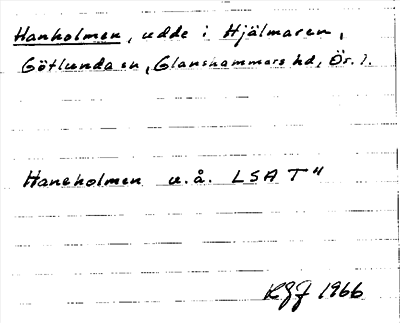 Hanholmen, udde i Hjälmaren,
Götlunda sn, Glanshammars hd, Ör. l.
Haneholmen u.å. LSA T"
RGJ 1966